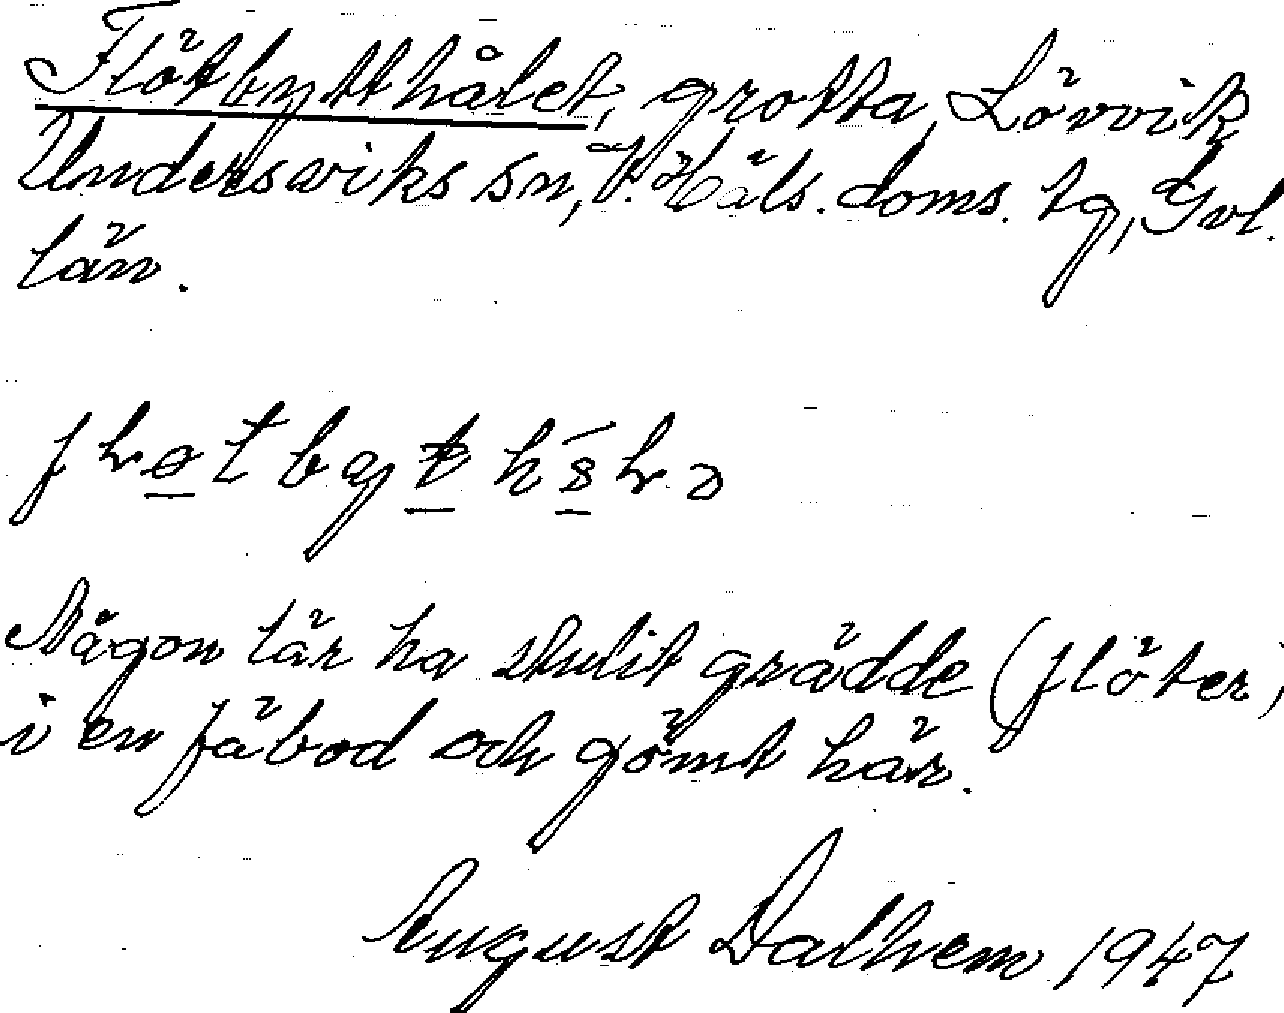 Flötbytthålet, grotta, Lövvik
Undersviks sn, V. Häls. doms. tg, Gvl.
län.
Någon lär ha stulit grädde (flöter)
i en fäbod och gömt här.
August Dalhem 1947